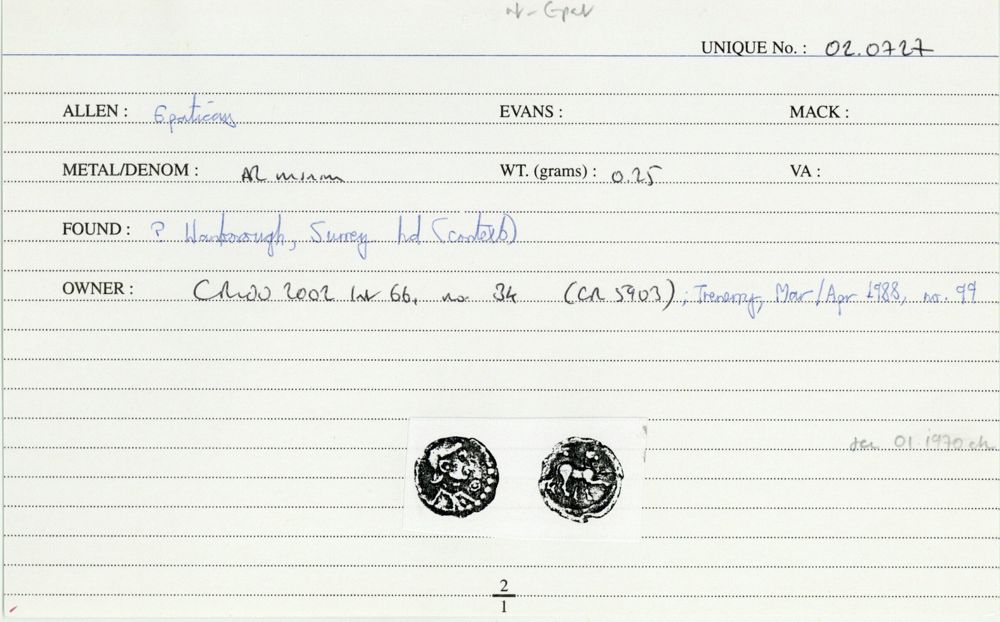 UNIQUE No. : 02.0727
ALLEN : Epaticcus EVANS : MACK :
METAL/DENOM : AR minim WT. (grams) : 0.25 VA :
FOUND : ? Wanborough, Surrey hd (context)
OWNER : 2002 list 66, no. 34 (CR 5903) ; Mar/Apr 1988, no. 99
01.1970
2
1